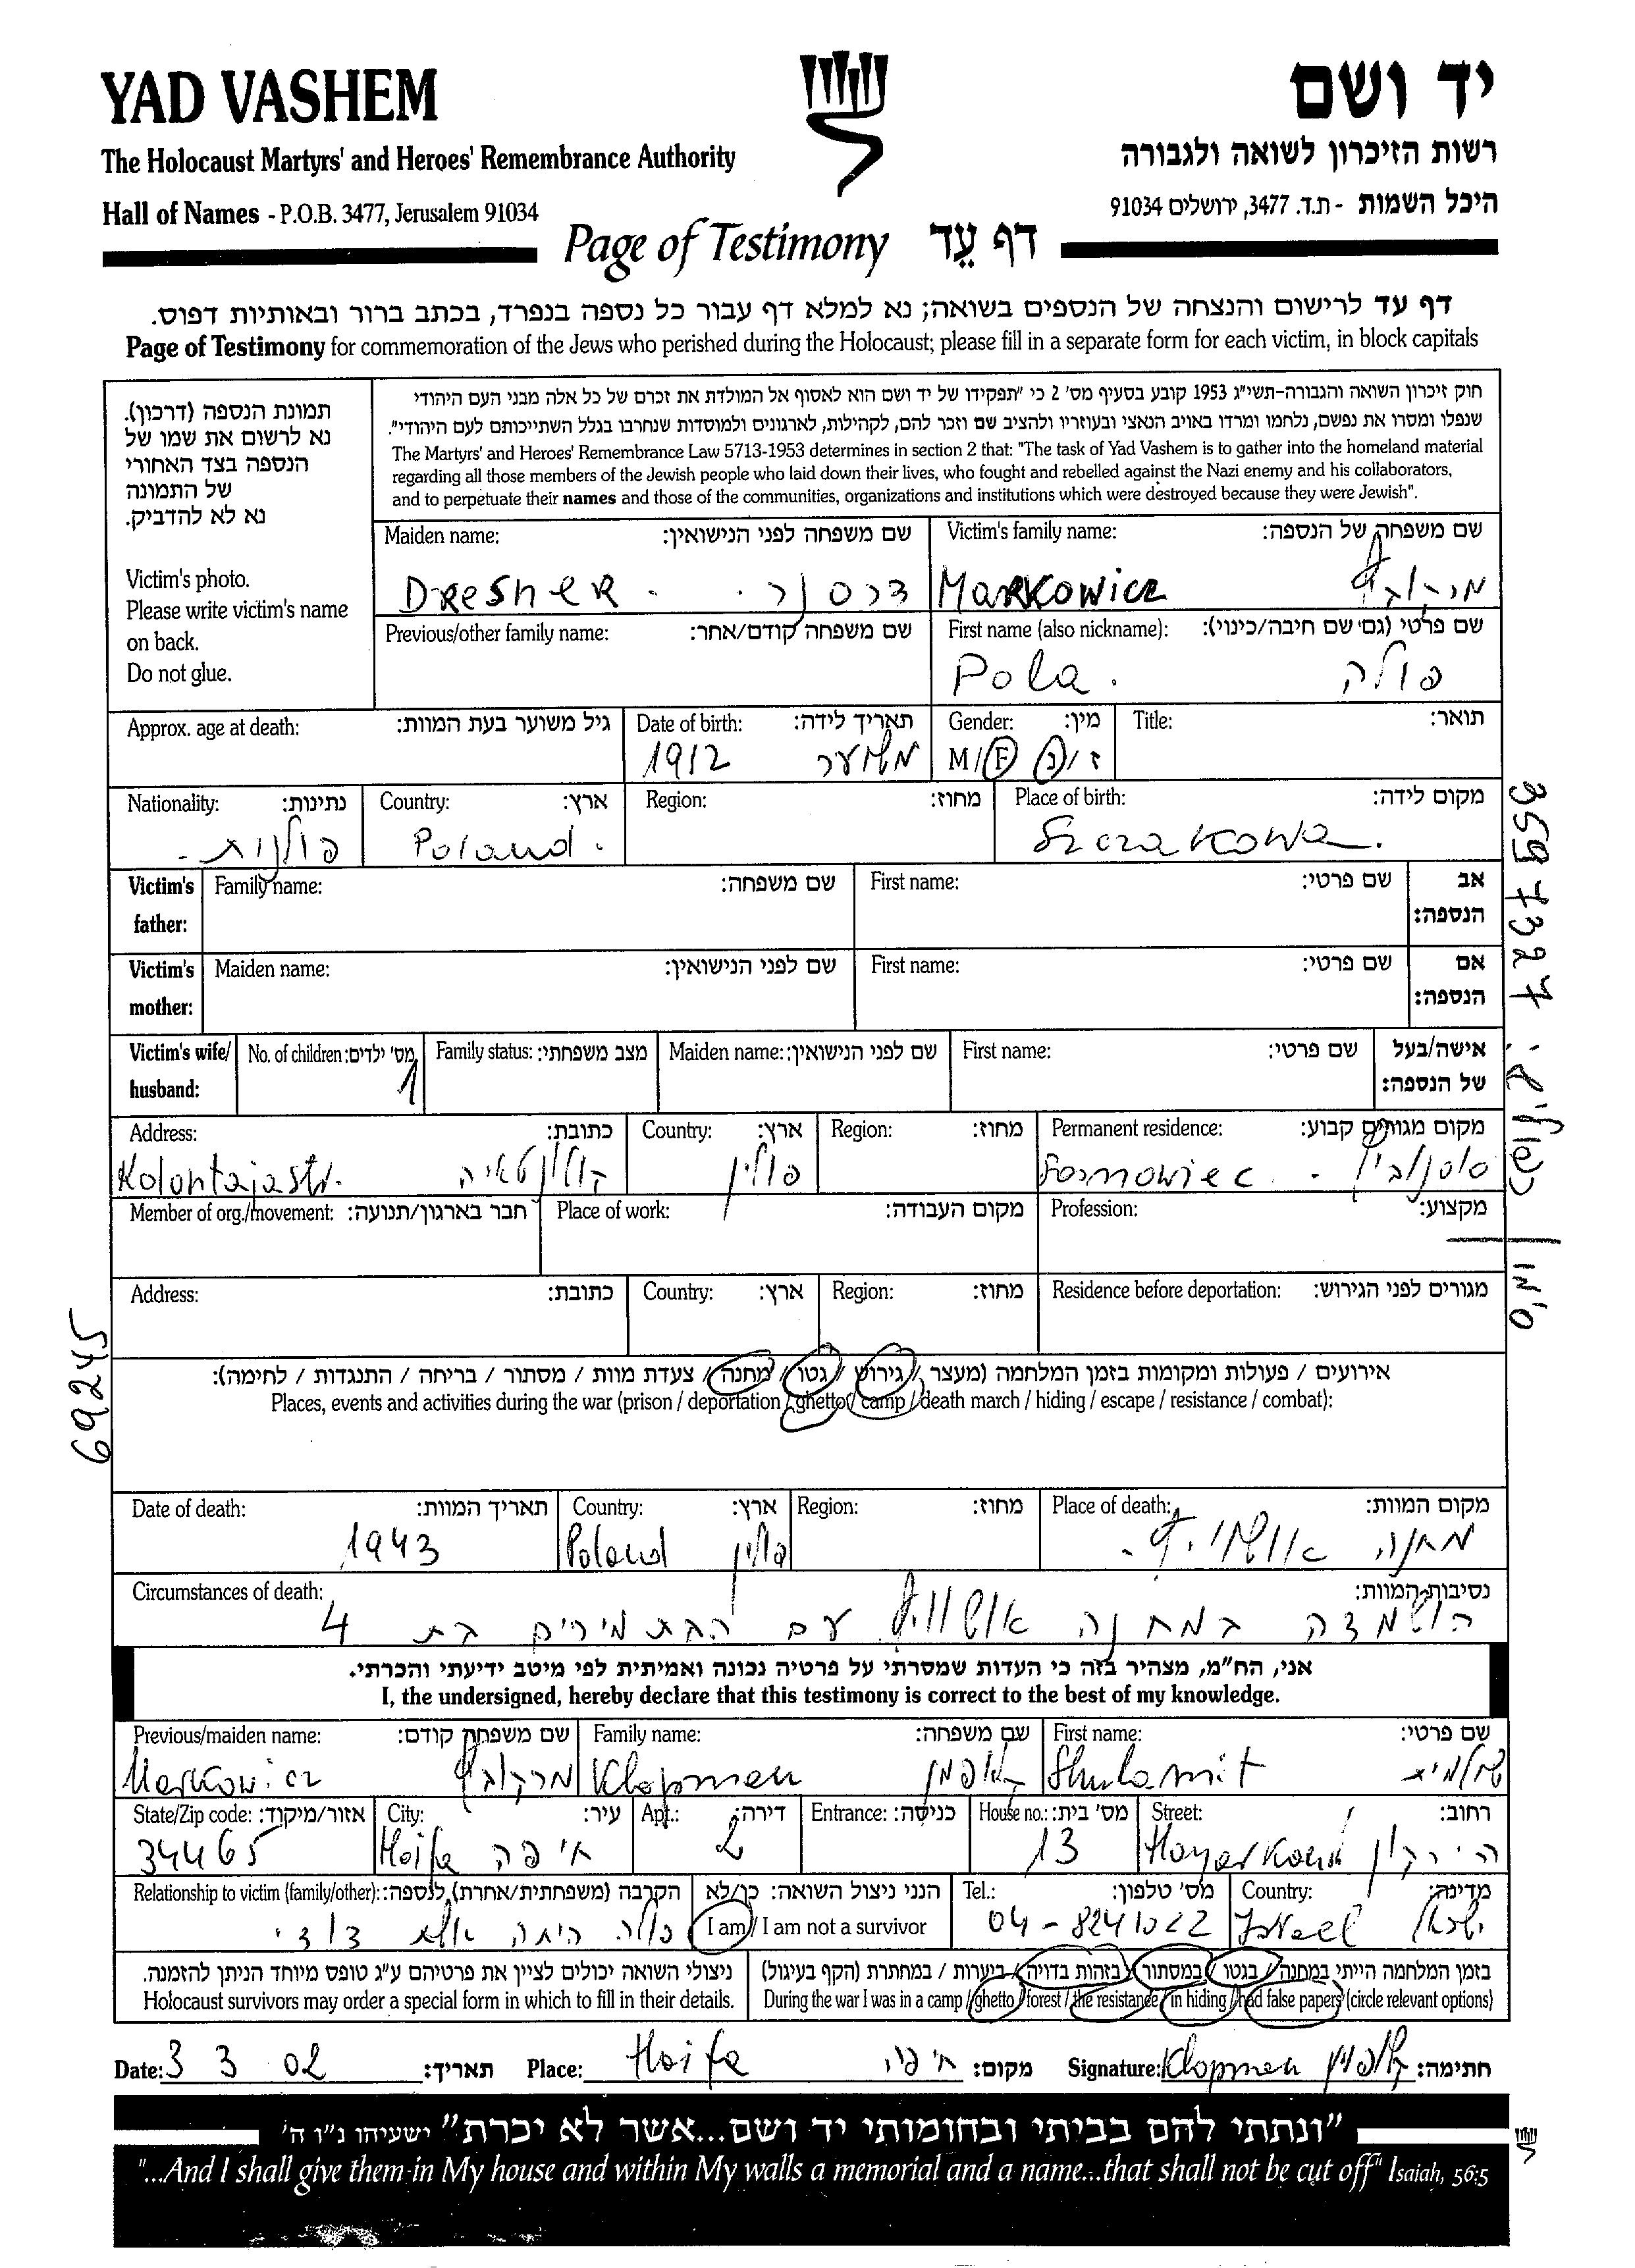 YAD VASHEM
יד ושם
The Holocaust Martyrs' and Heroes' Remembrance Authority
רשות הזיכרון לשואה ולגבורה
Hall of Names - P.O.B. 3477, Jerusalem 91034
היכל השמות - ת.ד. 3477, ירושלים 91034
Page of Testimony דף עֵד
דף עד לרישום והנצחה של הנספים בשואה; נא למלא דף עבור כל נספה בנפרד, בכתב ברור ובאותיות דפוס.
Page of Testimony for commemoration of the Jews who perished during the Holocaust; please fill in a separate form for each victim, in block capitals
תמונת הנספה (דרכון).
נא לרשום את שמו של
הנספה בצד האחורי
של התמונה
נא לא להדביק.
Victim's photo.
Please write victim's name
on back.
Do not glue.
חוק זיכרון השואה והגבורה-תשי"ג 1953 קובע בסעיף מס' 2 כי "תפקידו של יד ושם הוא לאסוף אל המולדת את זכרם של כל אלה מבני העם היהודי
שנפלו ומסרו את נפשם, נלחמו ומרדו באויב הנאצי ובעוזריו ולהציב שם וזכר להם, לקהילות, לארגונים ולמוסדות שנחרבו בגלל השתייכותם לעם היהודי".
The Martyrs' and Heroes' Remembrance Law 5713-1953 determines in section 2 that: "The task of Yad Vashem is to gather into the homeland material
regarding all those members of the Jewish people who laid down their lives, who fought and rebelled against the Nazi enemy and his collaborators,
and to perpetuate their names and those of the communities, organizations and institutions which were destroyed because they were Jewish".
Maiden name: שם משפחה לפני הנישואין: Victim's family name: שם משפחה של הנספה:
Dresher דרסנר Markowicz מרקוביץ
Previous/other family name: שם משפחה קודם/אחר: First name (also nickname): שם פרטי (גם שם חיבה/כינוי):
Pola. פולה
Approx. age at death: גיל משוער בעת המוות: Date of birth: תאריך לידה: Gender: מין: Title: תואר:
1912 משוער M/F ז/נ
Nationality: נתינות: Country: ארץ: Region: מחוז: Place of birth: מקום לידה:
פולנית Poland. Szczakowa.
Victim's father: Family name: שם משפחה: First name: שם פרטי: אב הנספה:
Victim's mother: Maiden name: שם לפני הנישואין: First name: שם פרטי: אם הנספה:
Victim's wife/ husband: No. of children: מס' ילדים: Family status: מצב משפחתי: Maiden name: שם לפני הנישואין: First name: שם פרטי: אישה/בעל של הנספה:
1
Address: כתובת: Country: ארץ: Region: מחוז: Permanent residence: מקום מגורים קבוע:
Kolontaja str. קולונטאיה פולין Sosnowiec סוסנוביץ
Member of org./movement: חבר בארגון/תנועה: Place of work: מקום העבודה: Profession: מקצוע:
Address: כתובת: Country: ארץ: Region: מחוז: Residence before deportation: מגורים לפני הגירוש:
אירועים / פעולות ומקומות בזמן המלחמה (מעצר / גירוש / גטו / מחנה / צעדת מוות / מסתור / בריחה / התנגדות / לחימה):
Places, events and activities during the war (prison / deportation / ghetto / camp / death march / hiding / escape / resistance / combat):
Date of death: תאריך המוות: Country: ארץ: Region: מחוז: Place of death: מקום המוות:
1943 Poland פולין מחנה אושוויץ
Circumstances of death: נסיבות המוות:
הושמדה במחנה אושוויץ עם הבת מירים בת 4
אני, הח"מ, מצהיר בזה כי העדות שמסרתי על פרטיה נכונה ואמיתית לפי מיטב ידיעתי והכרתי.
I, the undersigned, hereby declare that this testimony is correct to the best of my knowledge.
Previous/maiden name: שם משפחה קודם: Family name: שם משפחה: First name: שם פרטי:
Markowicz מרקוביץ Klopman קלופמן Shulamit שולמית
State/Zip code: אזור/מיקוד: City: עיר: Apt.: דירה: Entrance: כניסה: House no.: מס' בית: Street: רחוב:
34465 Haifa חיפה 2 13 Hayarkon הירקון
Relationship to victim (family/other): הקרבה (משפחתית/אחרת) לנספה: הנני ניצול השואה: כן/לא Tel.: מס' טלפון: Country: מדינה:
פולה היתה אשת דודי I am / I am not a survivor 04-8241022 Israel ישראל
ניצולי השואה יכולים לציין את פרטיהם ע"ג טופס מיוחד הניתן להזמנה. בזמן המלחמה הייתי במחנה / בגטו / במסתור / בזהות בדויה / ביערות / במחתרת (הקף בעיגול)
Holocaust survivors may order a special form in which to fill in their details. During the war I was in a camp / ghetto / forest / the resistance / in hiding / had false papers (circle relevant options)
Date: 3 3 02 תאריך: Place: Haifa חיפה מקום: Signature: Klopman קלופמן חתימה:
"ונתתי להם בביתי ובחומותי יד ושם...אשר לא יכרת" ישעיהו נ"ו ה'
"...And I shall give them in My house and within My walls a memorial and a name...that shall not be cut off" Isaiah, 56:5
69245
3597327